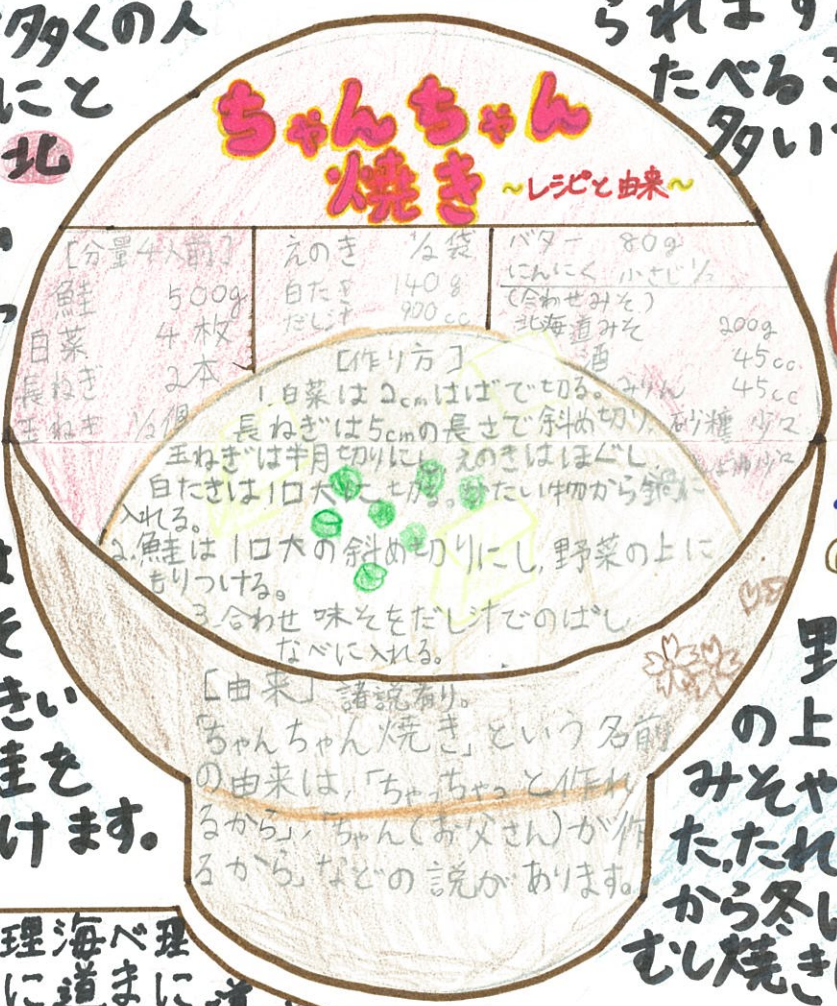 多くの人
にと
北
られます
たべるこ
多い
ちゃんちゃん
焼き ~レシピと由来~
[分量4人前]
鮭 500g
白菜 4枚
長ねぎ 2本
玉ねぎ 1/2個
えのき 1/2袋
白たき 140g
だし汁 900cc
バター 80g
にんにく 小さじ1/2
(合わせみそ)
北海道みそ 200g
酒 45cc.
みりん 45cc
砂糖 少々
[作り方]
1.白菜は2cmはばで切る。
長ねぎは5cmの長さで斜め切り
玉ねぎは半月切りにし、えのきはほぐし、
白たきは1口大に切る。かたい物から鍋に
入れる。
2.鮭は1口大の斜め切りにし、野菜の上に
もりつける。
3.合わせ味そをだし汁でのばし
なべに入れる。
[由来] 諸説有り。
「ちゃんちゃん焼き」という名前
の由来は、「ちゃっちゃっと作れ
るから」、「ちゃん(お父さん)が作
るから」などの説があります。
は
そ
きい
鮭を
けます。
野
の上
みそや
た、たれ
から冬
むし焼き
理海べ理
に道まに